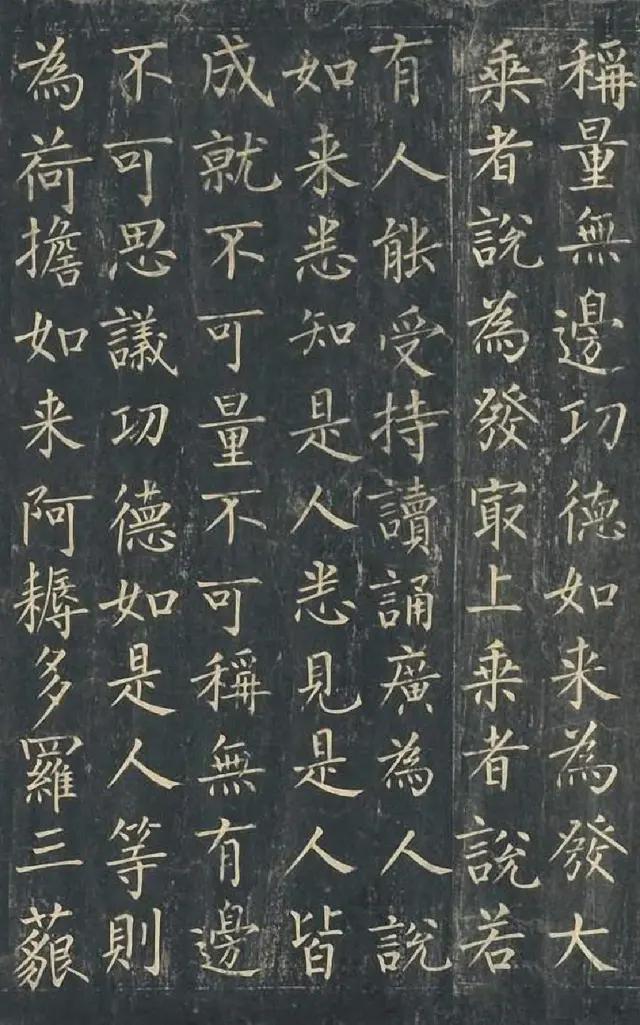 稱量無邊功德如来為發大
乗者說為發冣上乗者說若
有人能受持讀誦廣為人說
如来悉知是人悉見是人皆
成就不可量不可稱無有邊
不可思議功德如是人等則
為荷擔如来阿耨多羅三藐